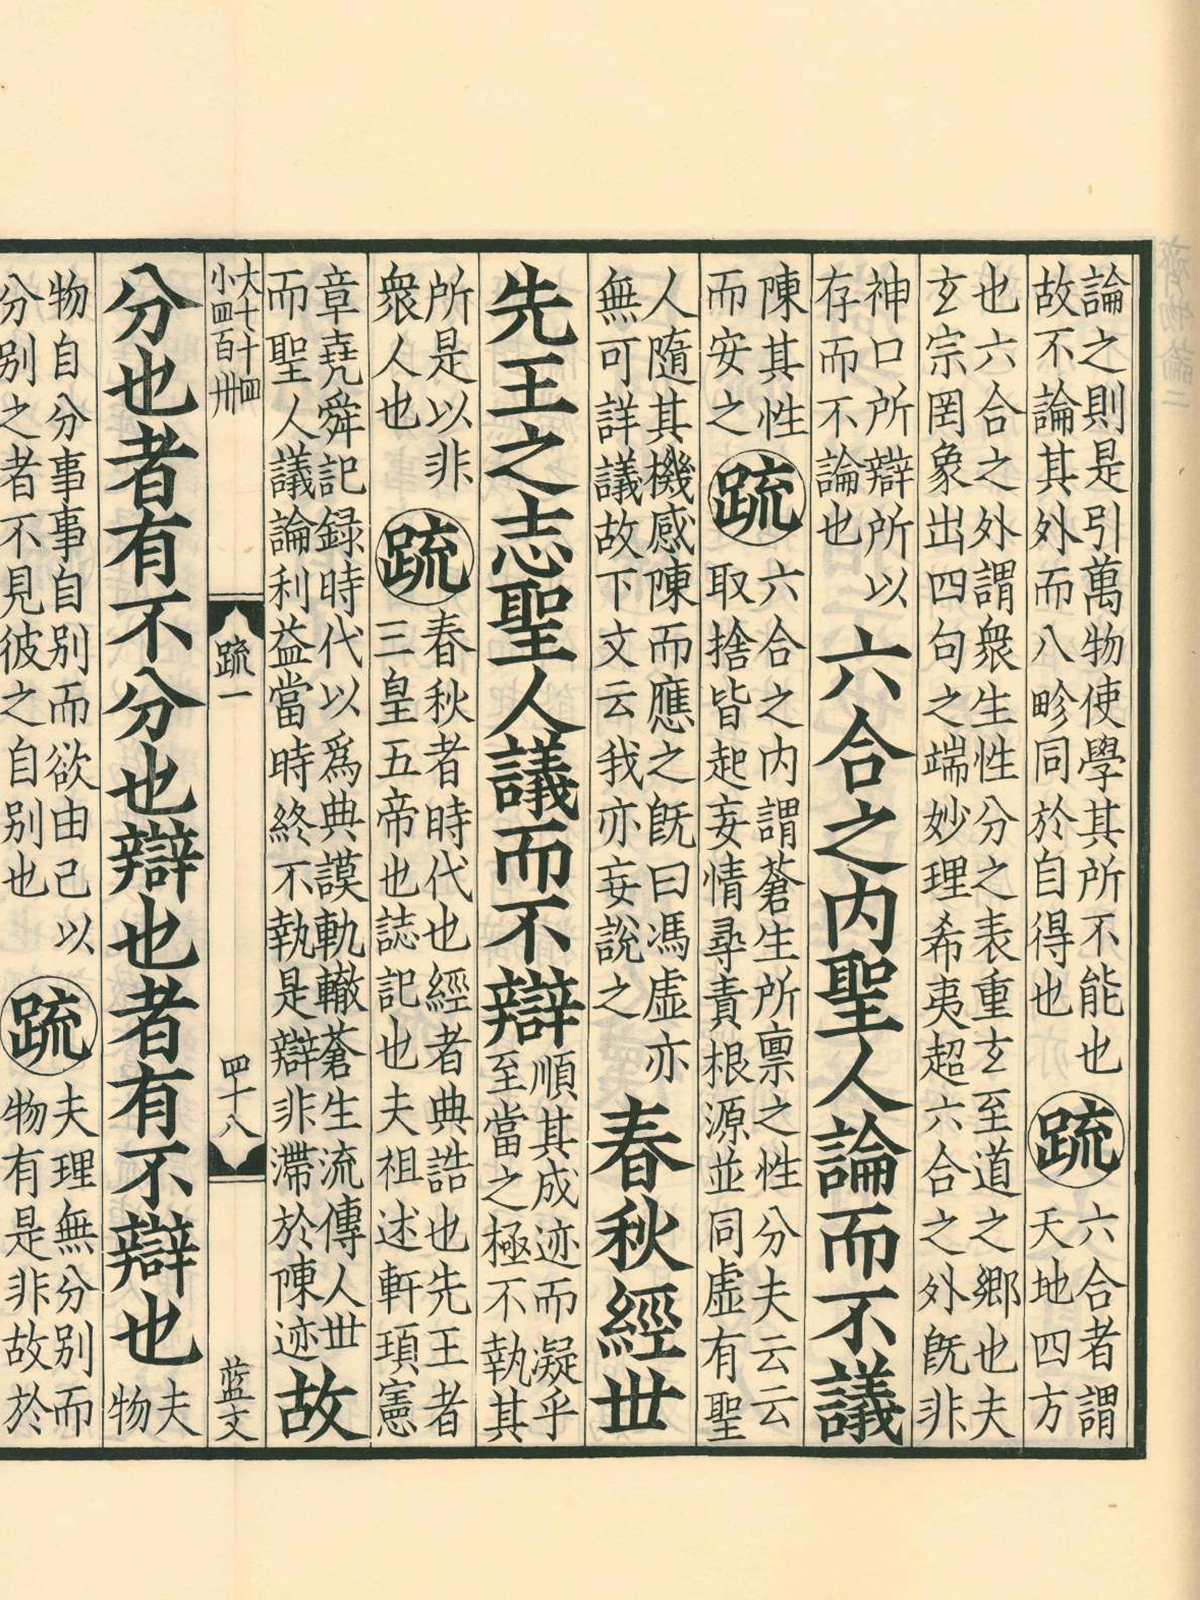 論之則是引萬物使學其所不能也
故不論其外而八畛同於自得也
疏
六合者謂
天地四方
也六合之外謂衆生性分之表重玄至道之鄉也夫
玄宗罔象出四句之端妙理希夷超六合之外既非
神口所辯所以
存而不論也
六合之内聖人論而不議
陳其性
而安之
疏
六合之内謂蒼生所禀之性分夫云云
取捨皆起妄情尋責根源並同虛有聖
人隨其機感陳而應之既曰馮虛亦
無可詳議故下文云我亦妄說之
春秋經世
先王之志聖人議而不辯
順其成迹而凝乎
至當之極不執其
所是以非
衆人也
疏
春秋者時代也經者典誥也先王者
三皇五帝也誌記也夫祖述軒頊憲
章堯舜記録時代以爲典謨軌轍蒼生流傳人世
而聖人議論利益當時終不執是辯非滯於陳迹
故
大七十四
小四百卅
疏一
四十八
蓝文
分也者有不分也辯也者有不辯也
夫
物
物自分事事自别而欲由己以
分别之者不見彼之自别也
疏
夫理無分别而
物有是非故於